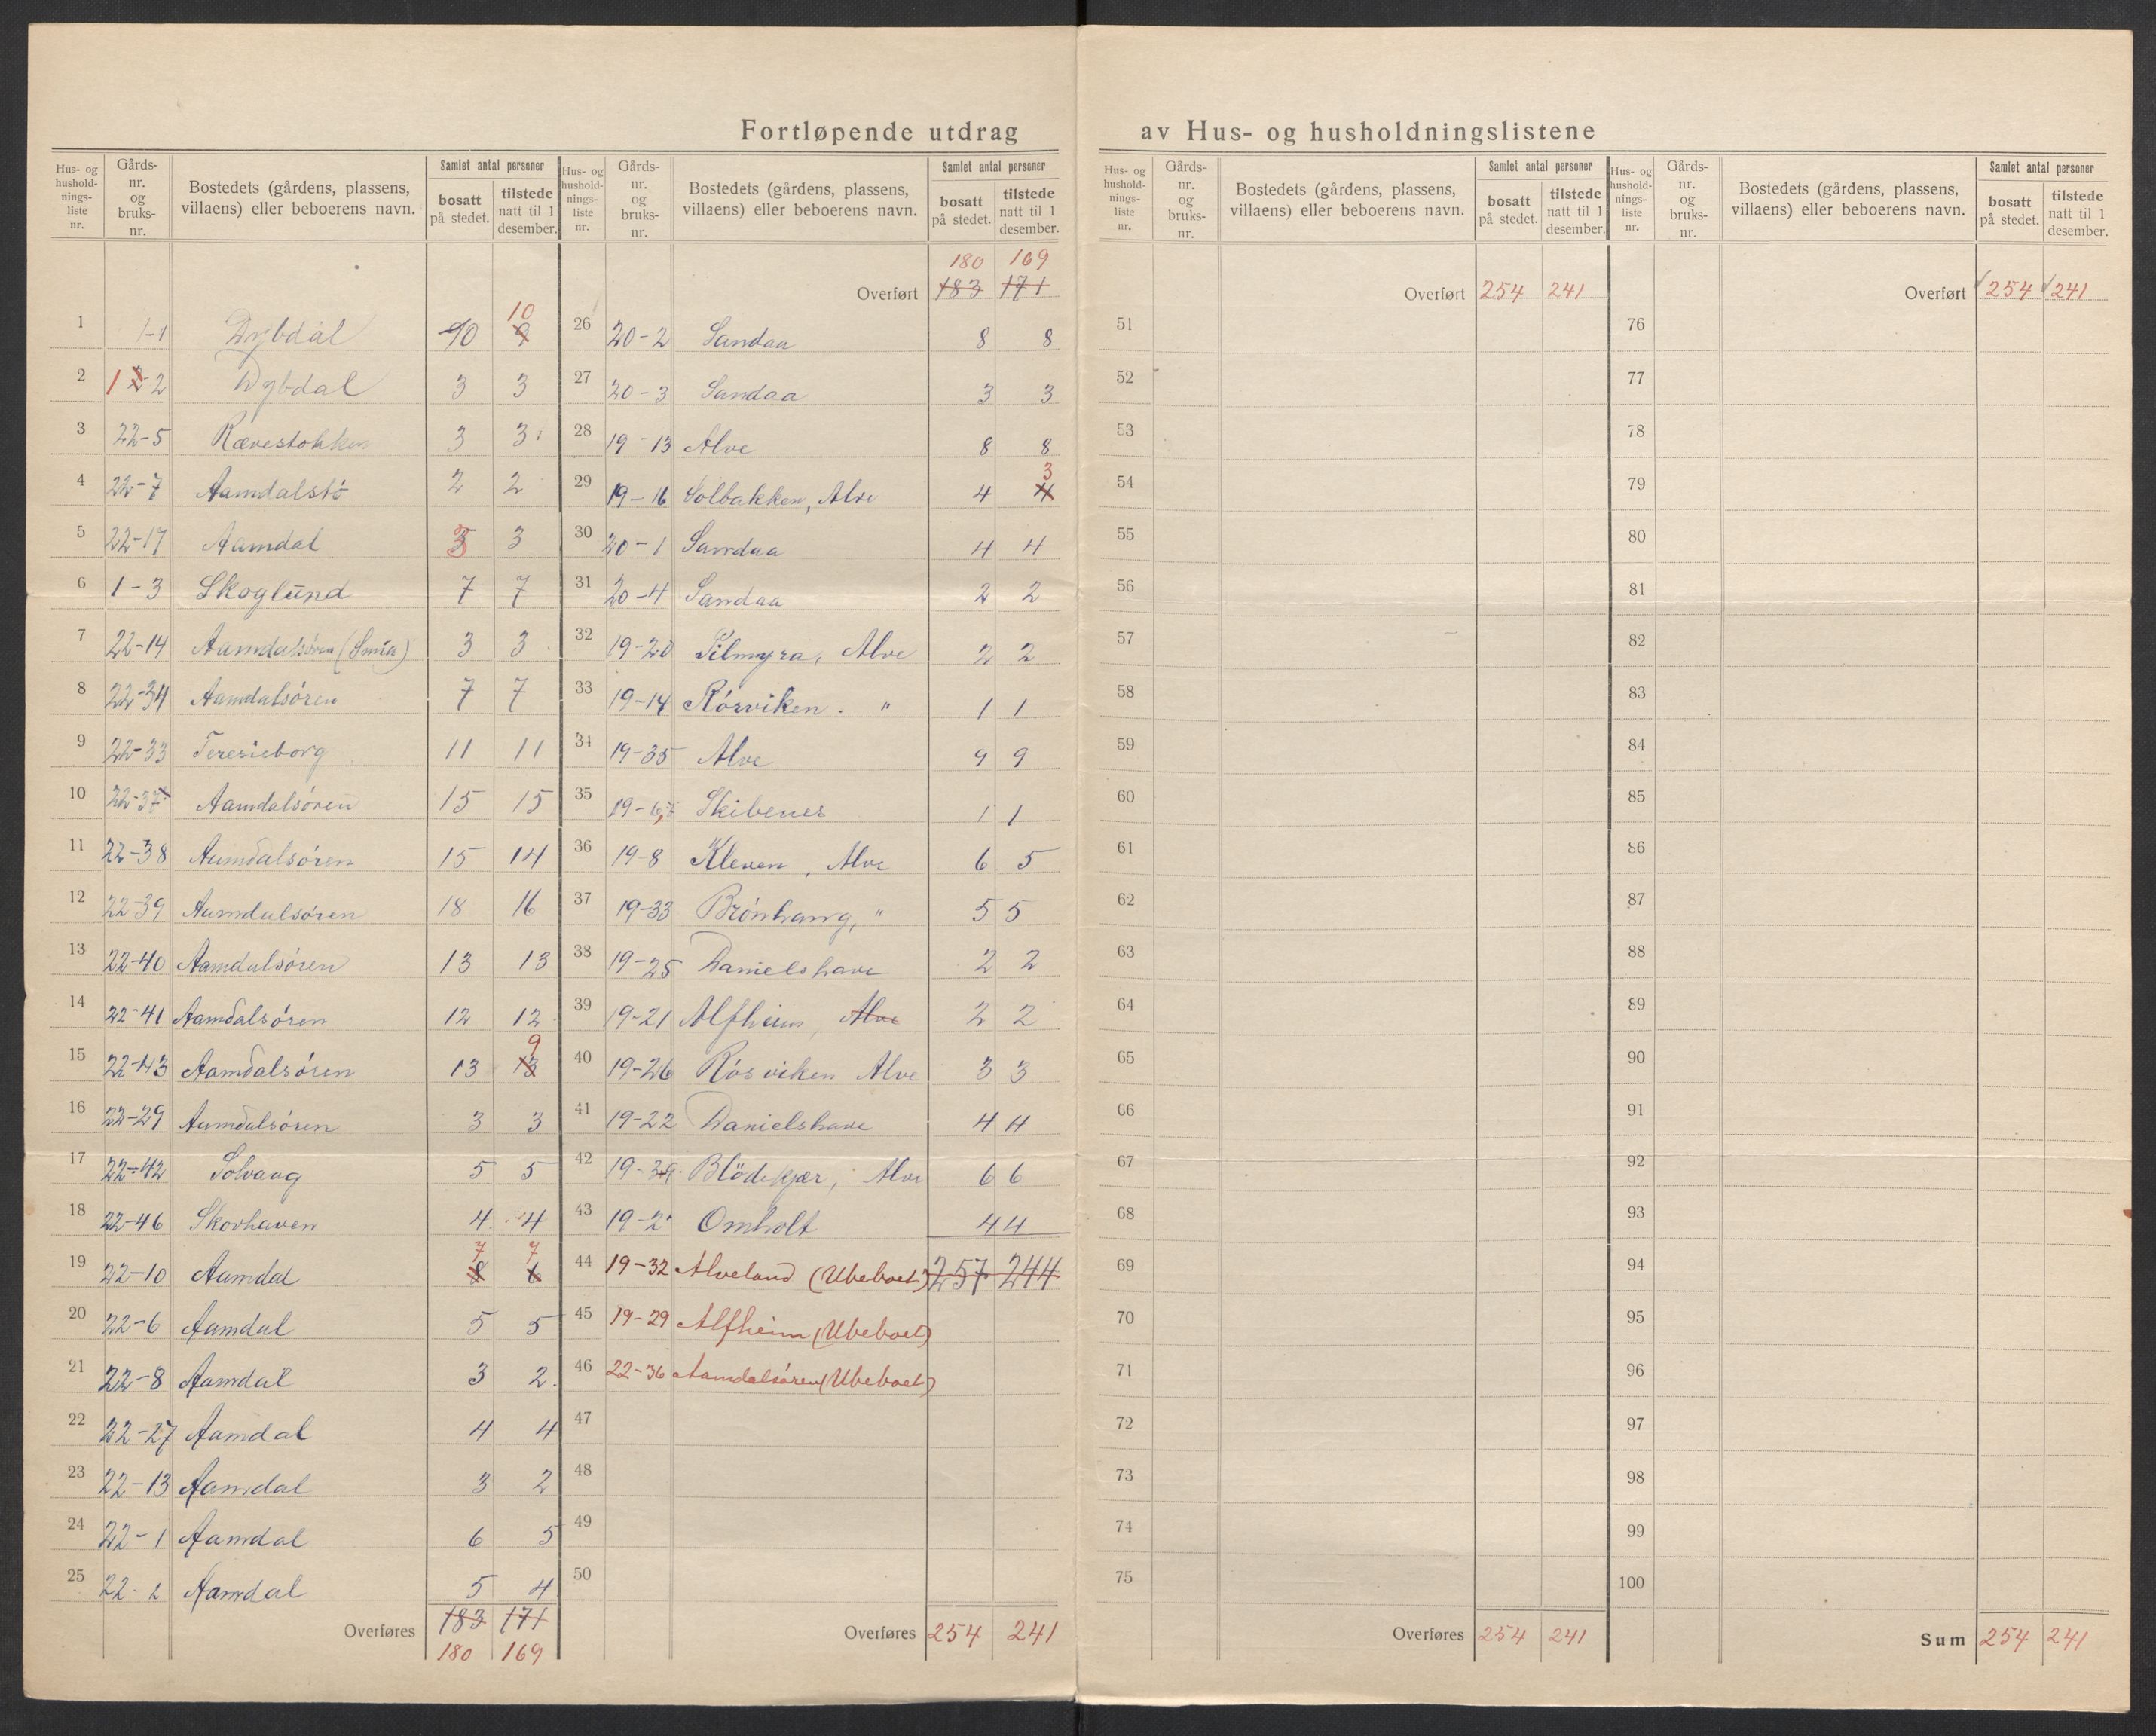 Fortløpende utdrag av Hus- og husholdningslistene
Hus- og hushold-nings-liste nr. | Gårds-nr. og bruks-nr. | Bostedets (gårdens, plassens, villaens) eller beboerens navn. | Samlet antal personer | bosatt på stedet. | tilstede natt til 1 desember.
1 1-1 Dybdal 10 9 10
2 1 2-2 Dybdal 3 3
3 22-5 Rævestokken 3 3
4 22-7 Aamdalstø 2 2
5 22-17 Aamdal 3 3
6 1-3 Skoglund 7 7
7 22-14 Aamdalsøren (Smia) 3 3
8 22-34 Aamdalsøren 7 7
9 22-33 Teresieborg 11 11
10 22-37 Aamdalsøren 15 15
11 22-38 Aamdalsøren 15 14
12 22-39 Aamdalsøren 18 16
13 22-40 Aamdalsøren 13 13
14 22-41 Aamdalsøren 12 12
15 22-43 Aamdalsøren 13 13 9
16 22-29 Aamdalsøren 3 3
17 22-42 Solvaag 5 5
18 22-46 Skovhaven 4 4
19 22-10 Aamdal 8 7 6 7
20 22-6 Aamdal 5 5
21 22-8 Aamdal 3 2
22 22-27 Aamdal 4 4
23 22-13 Aamdal 3 2
24 22-1 Aamdal 6 5
25 22-2 Aamdal 5 4
Overføres 183 171
180 169
Hus- og hushold-nings-liste nr. | Gårds-nr. og bruks-nr. | Bostedets (gårdens, plassens, villaens) eller beboerens navn. | Samlet antal personer | bosatt på stedet. | tilstede natt til 1 desember.
180 169
Overført 183 171
26 20-2 Sandaa 8 8
27 20-3 Sandaa 3 3
28 19-13 Alve 8 8
29 19-16 Solbakken, Alve 4 4 3
30 20-1 Sandaa 4 4
31 20-4 Sandaa 2 2
32 19-20 Pilmyra, Alve 2 2
33 19-14 Rørviken. " 1 1
34 19-35 Alve 9 9
35 19-6,7 Skibenes 1 1
36 19-8 Kleven, Alve 6 5
37 19-33 Brønhaug, " 5 5
38 19-25 Danielshave 2 2
39 19-21 Alfheim, Alve 2 2
40 19-26 Røsviken Alve 3 3
41 19-22 Danielshave 4 4
42 19-39 Blödekjær, Alve 6 6
43 19-2 Omholt 4 4
44 19-32 Alveland (Ubeboet) 257 244
45 19-29 Alfheim (Ubeboet)
46 22-36 Aamdalsøren (Ubeboet)
47
48
49
50
Overføres 254 241
Hus- og hushold-nings-liste nr. | Gårds-nr. og bruks-nr. | Bostedets (gårdens, plassens, villaens) eller beboerens navn. | Samlet antal personer | bosatt på stedet. | tilstede natt til 1 desember.
Overført 254 241
51
52
53
54
55
56
57
58
59
60
61
62
63
64
65
66
67
68
69
70
71
72
73
74
75
Overføres 254 241
Hus- og hushold-nings-liste nr. | Gårds-nr. og bruks-nr. | Bostedets (gårdens, plassens, villaens) eller beboerens navn. | Samlet antal personer | bosatt på stedet. | tilstede natt til 1 desember.
Overført 254 241
76
77
78
79
80
81
82
83
84
85
86
87
88
89
90
91
92
93
94
95
96
97
98
99
100
Sum 254 241